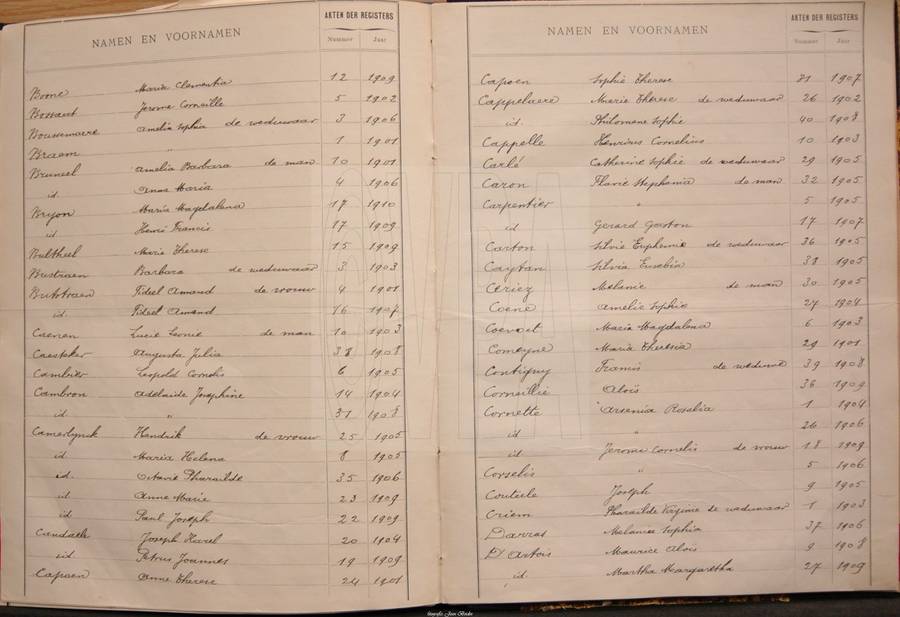 NAMEN EN VOORNAMEN AKTEN DER REGISTERS
Nummer Jaar
Boone Maria Clementia 12 1909
Bossaut Jerome Corneille 5 1902
Boussemaere Amelia Sophia de weduwaar 3 1906
Braem " 1 1901
Bruneel Amelia Barbara de man 10 1901
id Anna Maria 4 1906
Bryon Maria Magdalena 17 1910
id Henri Francis 17 1909
Bultheel Marie Therese 15 1909
Bustraen Barbara de weduwaar 3 1903
Butstraen Fideel Amand de vrouw 4 1901
id. Fideel Amand 16 1907
Caenen Lucie Leonie de man 10 1903
Caesteker Augusta Julia 38 1908
Cambier Leopold Cornelis 6 1905
Cambron Adelaide Josephine 14 1904
id " 31 1908
Camerlynck Hendrik de vrouw 25 1905
id Maria Helena 8 1905
id. Octavie Pharailde 35 1906
id Anne Marie 23 1909
id Paul Joseph 22 1909
Candaele Joseph Karel 20 1904
id. Petrus Joannes 19 1909
Capoen Anne Therese 24 1901
NAMEN EN VOORNAMEN AKTEN DER REGISTERS
Nummer Jaar
Capoen Sophie Therese 31 1907
Cappelaere Marie Therese de weduwaar 26 1902
id. Philomene Sophie 40 1908
Cappelle Henricus Cornelius 10 1903
Carlé Catherine Sophie de weduwaar 29 1905
Caron Flavie Stephania de man 32 1905
Carpentier " 5 1905
id Gerard Gaston 17 1907
Carton Silvie Euphemie de weduwaar 36 1905
Caytan Silvia Eusebia 38 1905
Ceriez Melanie de man 30 1905
Coene Amelie Sophie 27 1904
Coevoet Maria Magdalena 6 1903
Comeyne Maria Theresia 29 1901
Contigny Francis de weduwe 39 1908
Corneillie Aloïs 36 1909
Cornette Arsenia Rosalia 1 1904
id " 26 1906
id Jerome Cornelis de vrouw 18 1909
Corselis " 5 1906
Couttele Joseph 9 1905
Criem Pharailde Virginie de weduwaar 1 1903
Darras Melanie Sophia 37 1906
D'Artois Maurice Aloïs 9 1908
id. Martha Margaretha 27 1909